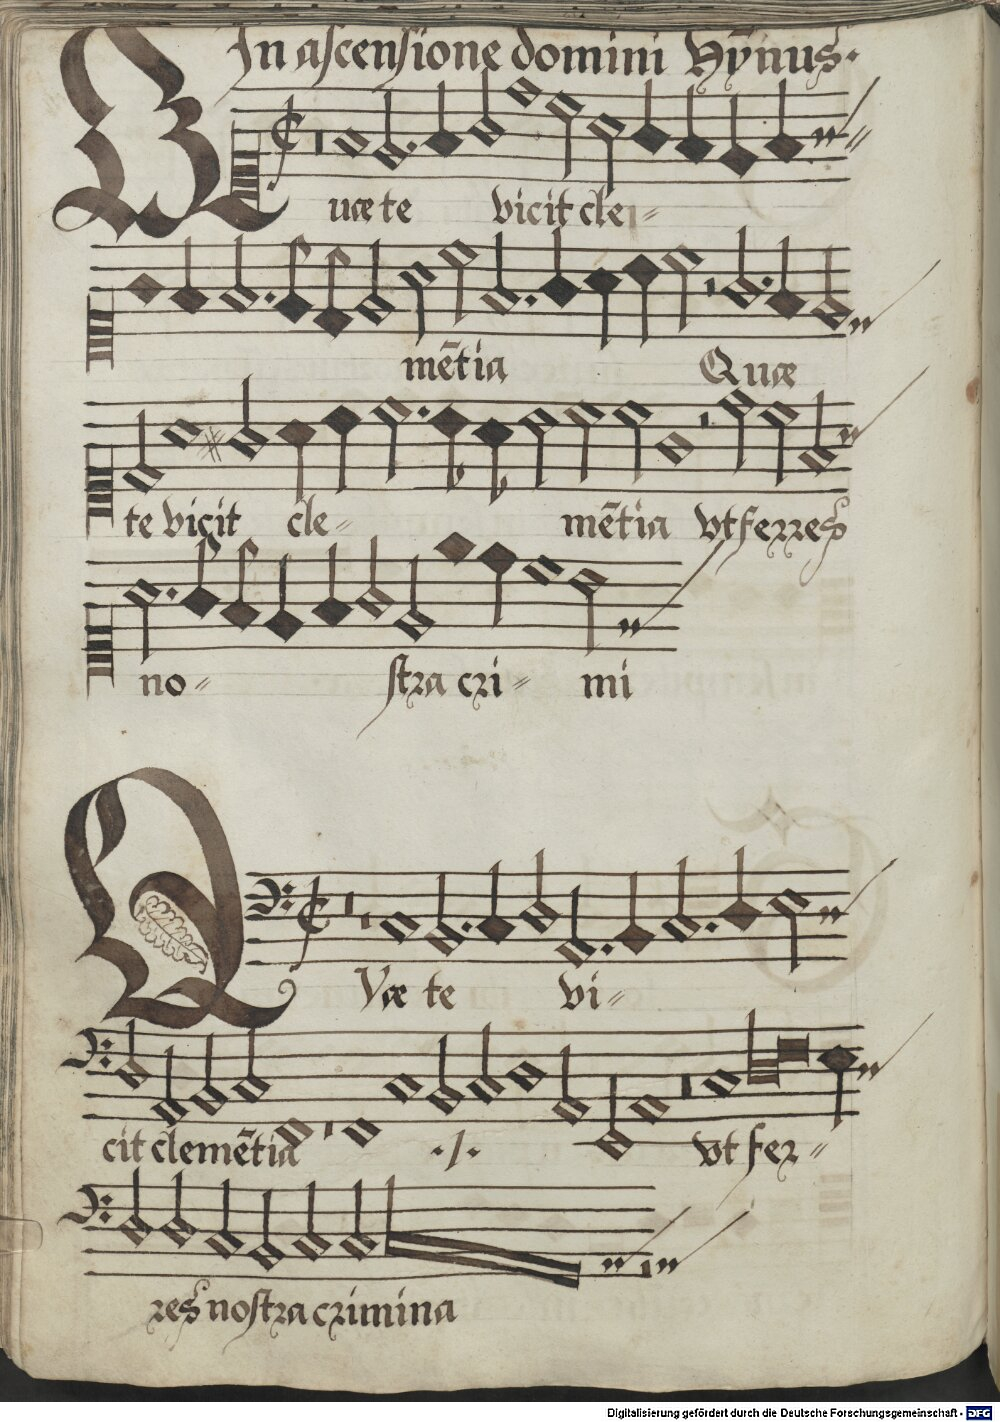 In ascensione domini Hȳnus.
Quæ te vicit cle=
mētia Quæ
te vicit cle= mētia vt ferres
no= stra cri= mi
QVæ te vi=
cit clemētia ./. vt fer=
res nostra crimina
Digitalisierung gefördert durch die Deutsche Forschungsgemeinschaft - DFG